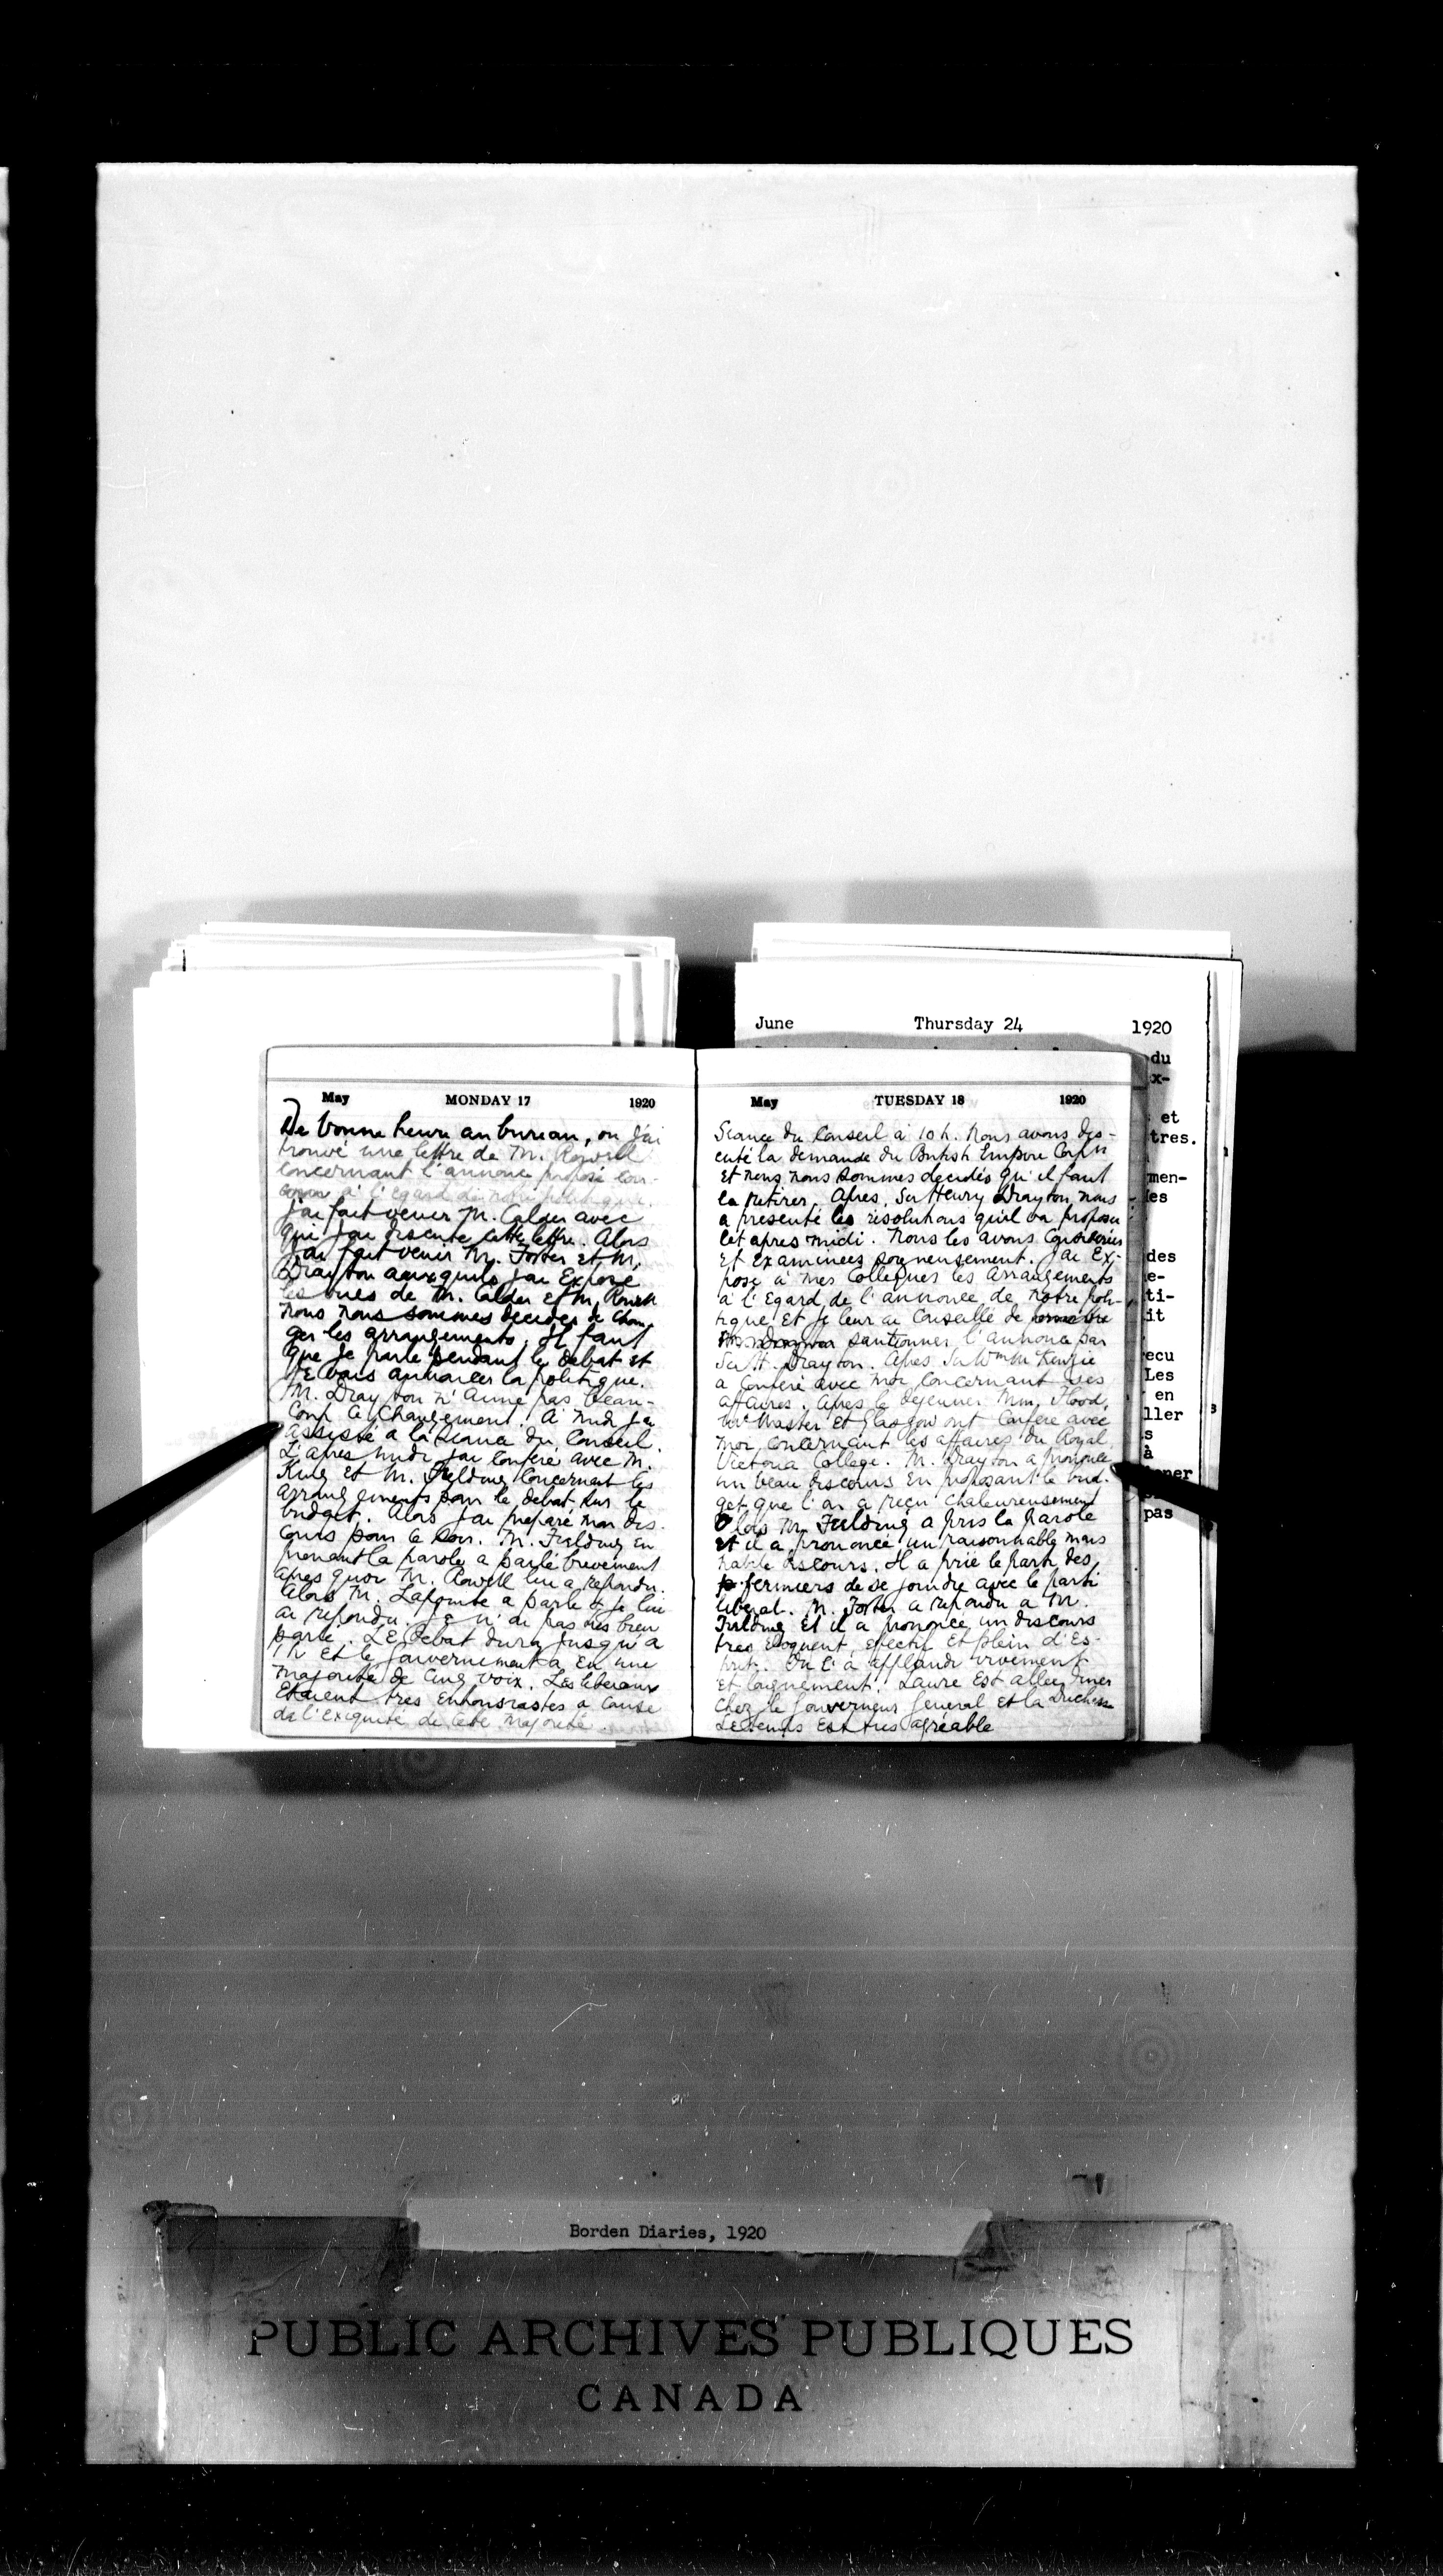 June Thursday 24 1920
du
x-
et
tres.
men-
des
ti-
it
ecu
Les
en
ller
s
à
pas
May MONDAY 17 1920
De bonne heure au bureau, ou j'ai
trouvé une lettre de M. Rowell
concernant l'annonce proposé
à l'egard de notre politique.
J'ai fait venir M. Calder avec
qui j'ai discuté cette lettre. Alors
j'ai fait venir M. Foster et M.
Drayton auxquels j'ai exposé
les vues de M. Calder et M. Rowell
nous nous sommes decides de chan-
ger les arrangements. Il faut
que je parle pendant le debat et
je vais annoncer la politique.
M. Drayton n'aime pas beau-
coup ce changement. A midi j'ai
assisté a la seance du Conseil.
L'apres midi j'ai conferé avec M.
King et M. Fielding concernant les
arrangements pour le debat sur le
budget. Alors j'ai preparé mon dis-
cours pour le soir. M. Fielding en
prenant la parole a parlé brevement
apres quoi M. Rowell lui a repondu.
Alors M. Lapointe a parlé & je lui
ai repondu. Je n'ai pas tres bien
parlé. Le debat dura jusqu'à
1 h et le gouvernement a eu une
majorité de cinq voix. Les liberaux
etaient tres enthousiastes a cause
de l'exiguité de cette majorité.
May TUESDAY 18 1920
Seance du Conseil à 10 h. Nous avons dis-
cuté la demande du British Empire Corpn
et nous nous sommes decidés qu'il faut
la retirer. Apres, Sir Henry Drayton nous
a presenté les résolutions qu'il va proposer
cet apres midi. Nous les avons considerées
et examinées soigneusement. J'ai ex-
posé à mes collegues les arrangements
à l'egard de l'annonce de notre poli-
tique et je leur ai conseillé de
sanctionner l'annonce par
Sir H. Drayton. Apres Sir Wm McKenzie
a conferé avec moi concernant ses
affaires. Apres le dejeuner MM. Flood,
McMaster et Glasgow ont conferé avec
moi concernant les affaires du Royal
Victoria College. M. Drayton a prononcé
un beau discours en proposant le bud-
get que l'on a reçu chaleureusement
Alors M. Fielding a pris la parole
et il a prononcé un raisonnable mais
habile discours. Il a prié le parti des
fermiers de se joindre avec le parti
liberal. M. Foster a repondu a M.
Fielding et il a prononcé un discours
tres eloquent, effectif et plein d'es-
prit. On l'a applaudi vivement
et longuement. Laure est allée diner
chez le Gouverneur General et la Duchesse
Le temps est tres agréable
Borden Diaries, 1920
PUBLIC ARCHIVES PUBLIQUES
CANADA